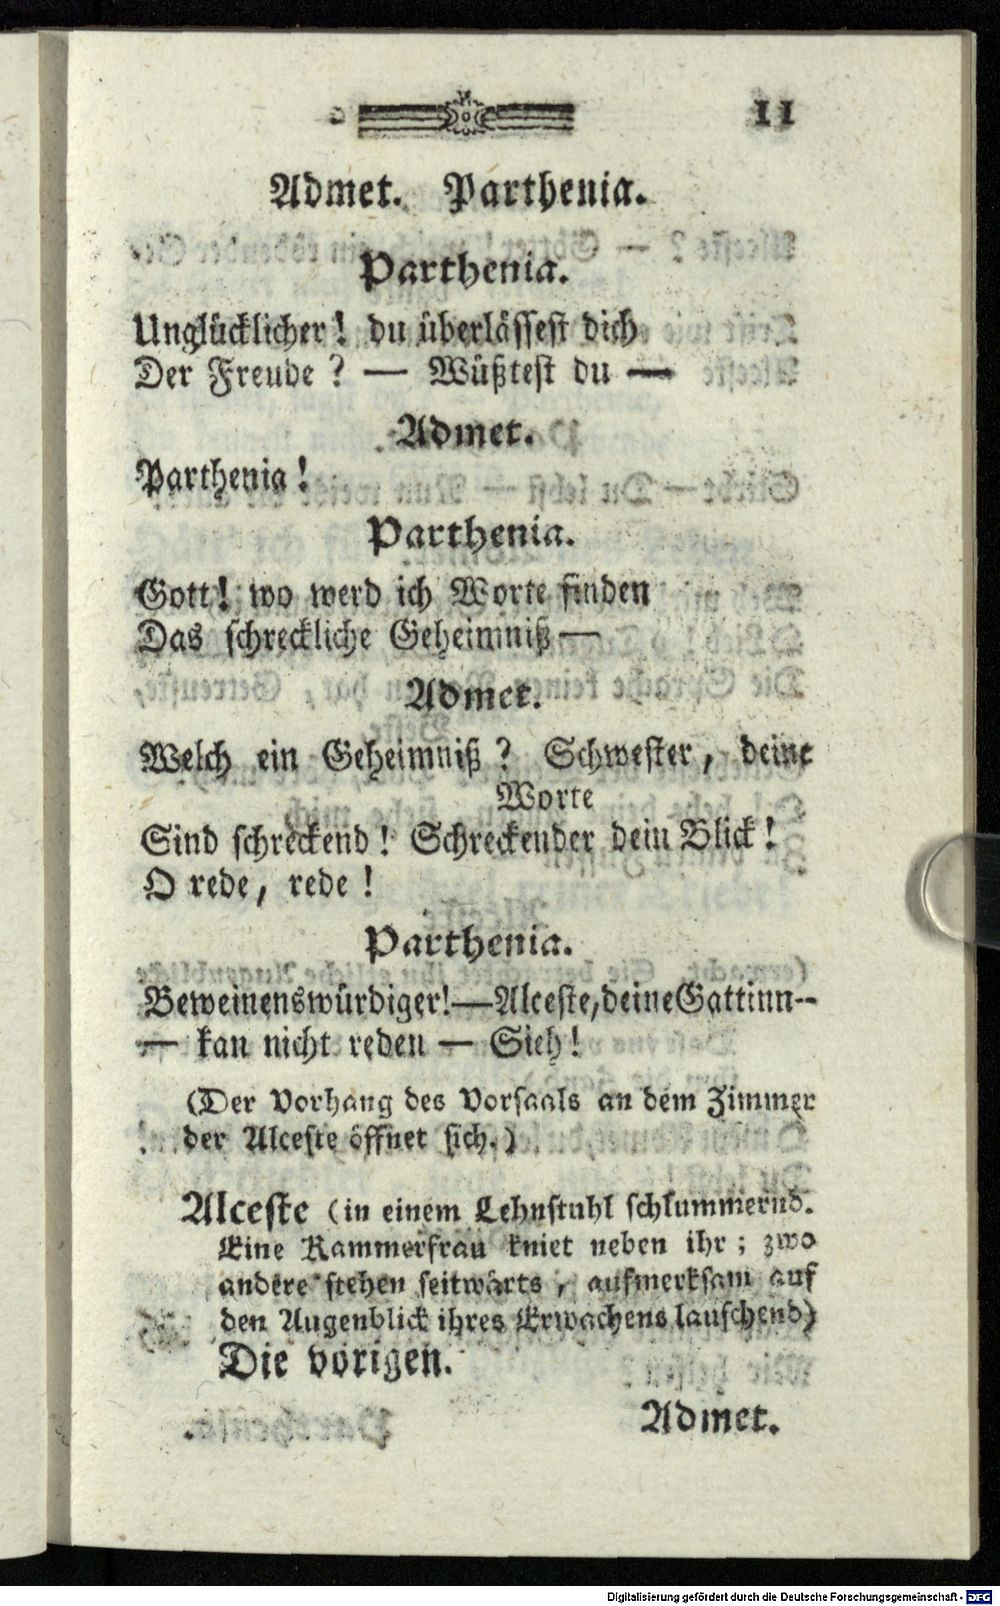 11
Admet. Parthenia.
Parthenia.
Unglücklicher! du überlässest dich
Der Freude? — Wüßtest du —
Admet.
Parthenia!
Parthenia.
Gott! wo werd ich Worte finden
Das schreckliche Geheimniß —
Admet.
Welch ein Geheimniß? Schwester, deine
Worte
Sind schreckend! Schreckender dein Blick!
O rede, rede!
Parthenia.
Beweinenswürdiger! — Alceste, deine Gattinn--
— kan nicht reden — Sieh!
(Der Vorhang des Vorsaals an dem Zimmer
der Alceste öffnet sich.)
Alceste (in einem Lehnstuhl schlummernd.
Eine Kammerfrau kniet neben ihr; zwo
andere stehen seitwärts, aufmerksam auf
den Augenblick ihres Erwachens lauschend)
Die vorigen.
Admet.
Digitalisierung gefördert durch die Deutsche Forschungsgemeinschaft - DFG